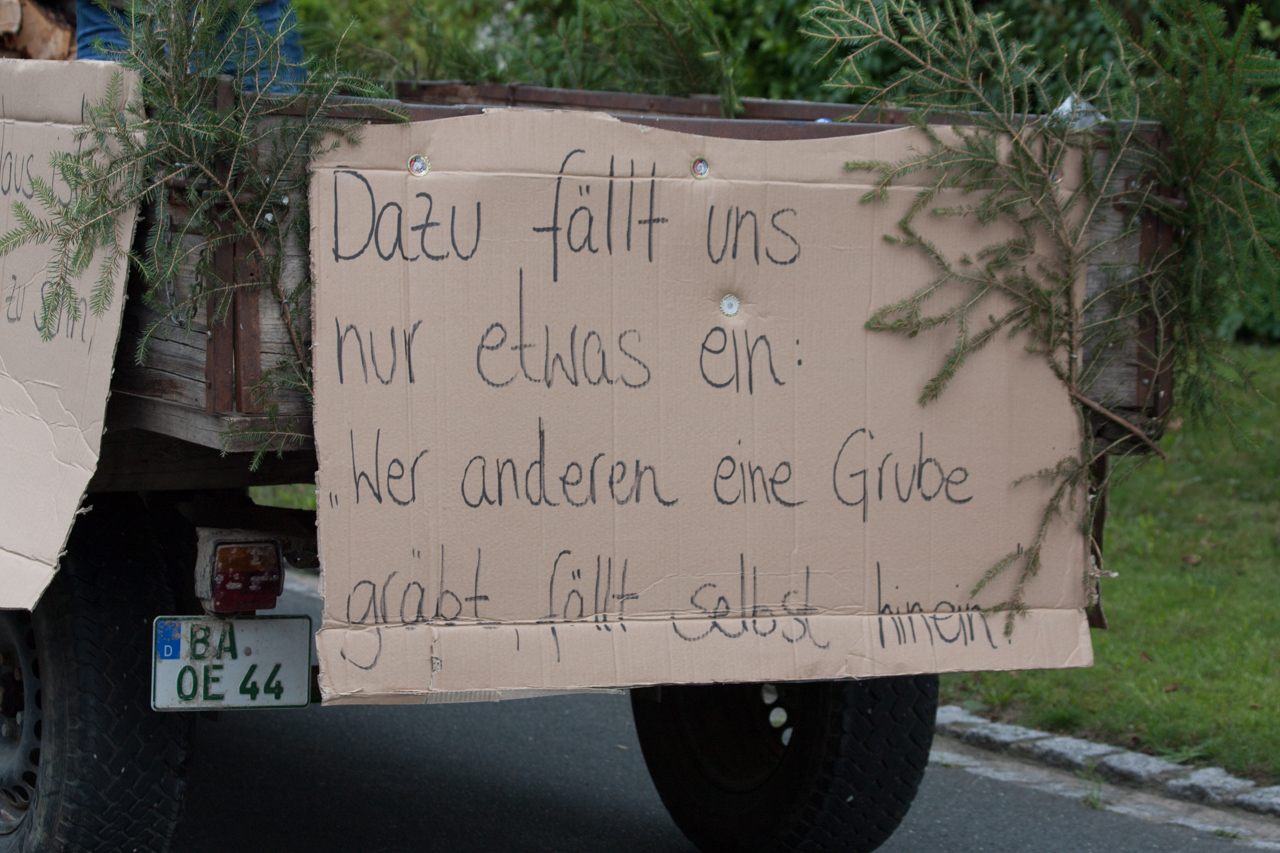 Dazu fällt uns
nur etwas ein:
„Wer anderen eine Grube
gräbt, fällt selbst hinein."
D
BA
OE 44
zu